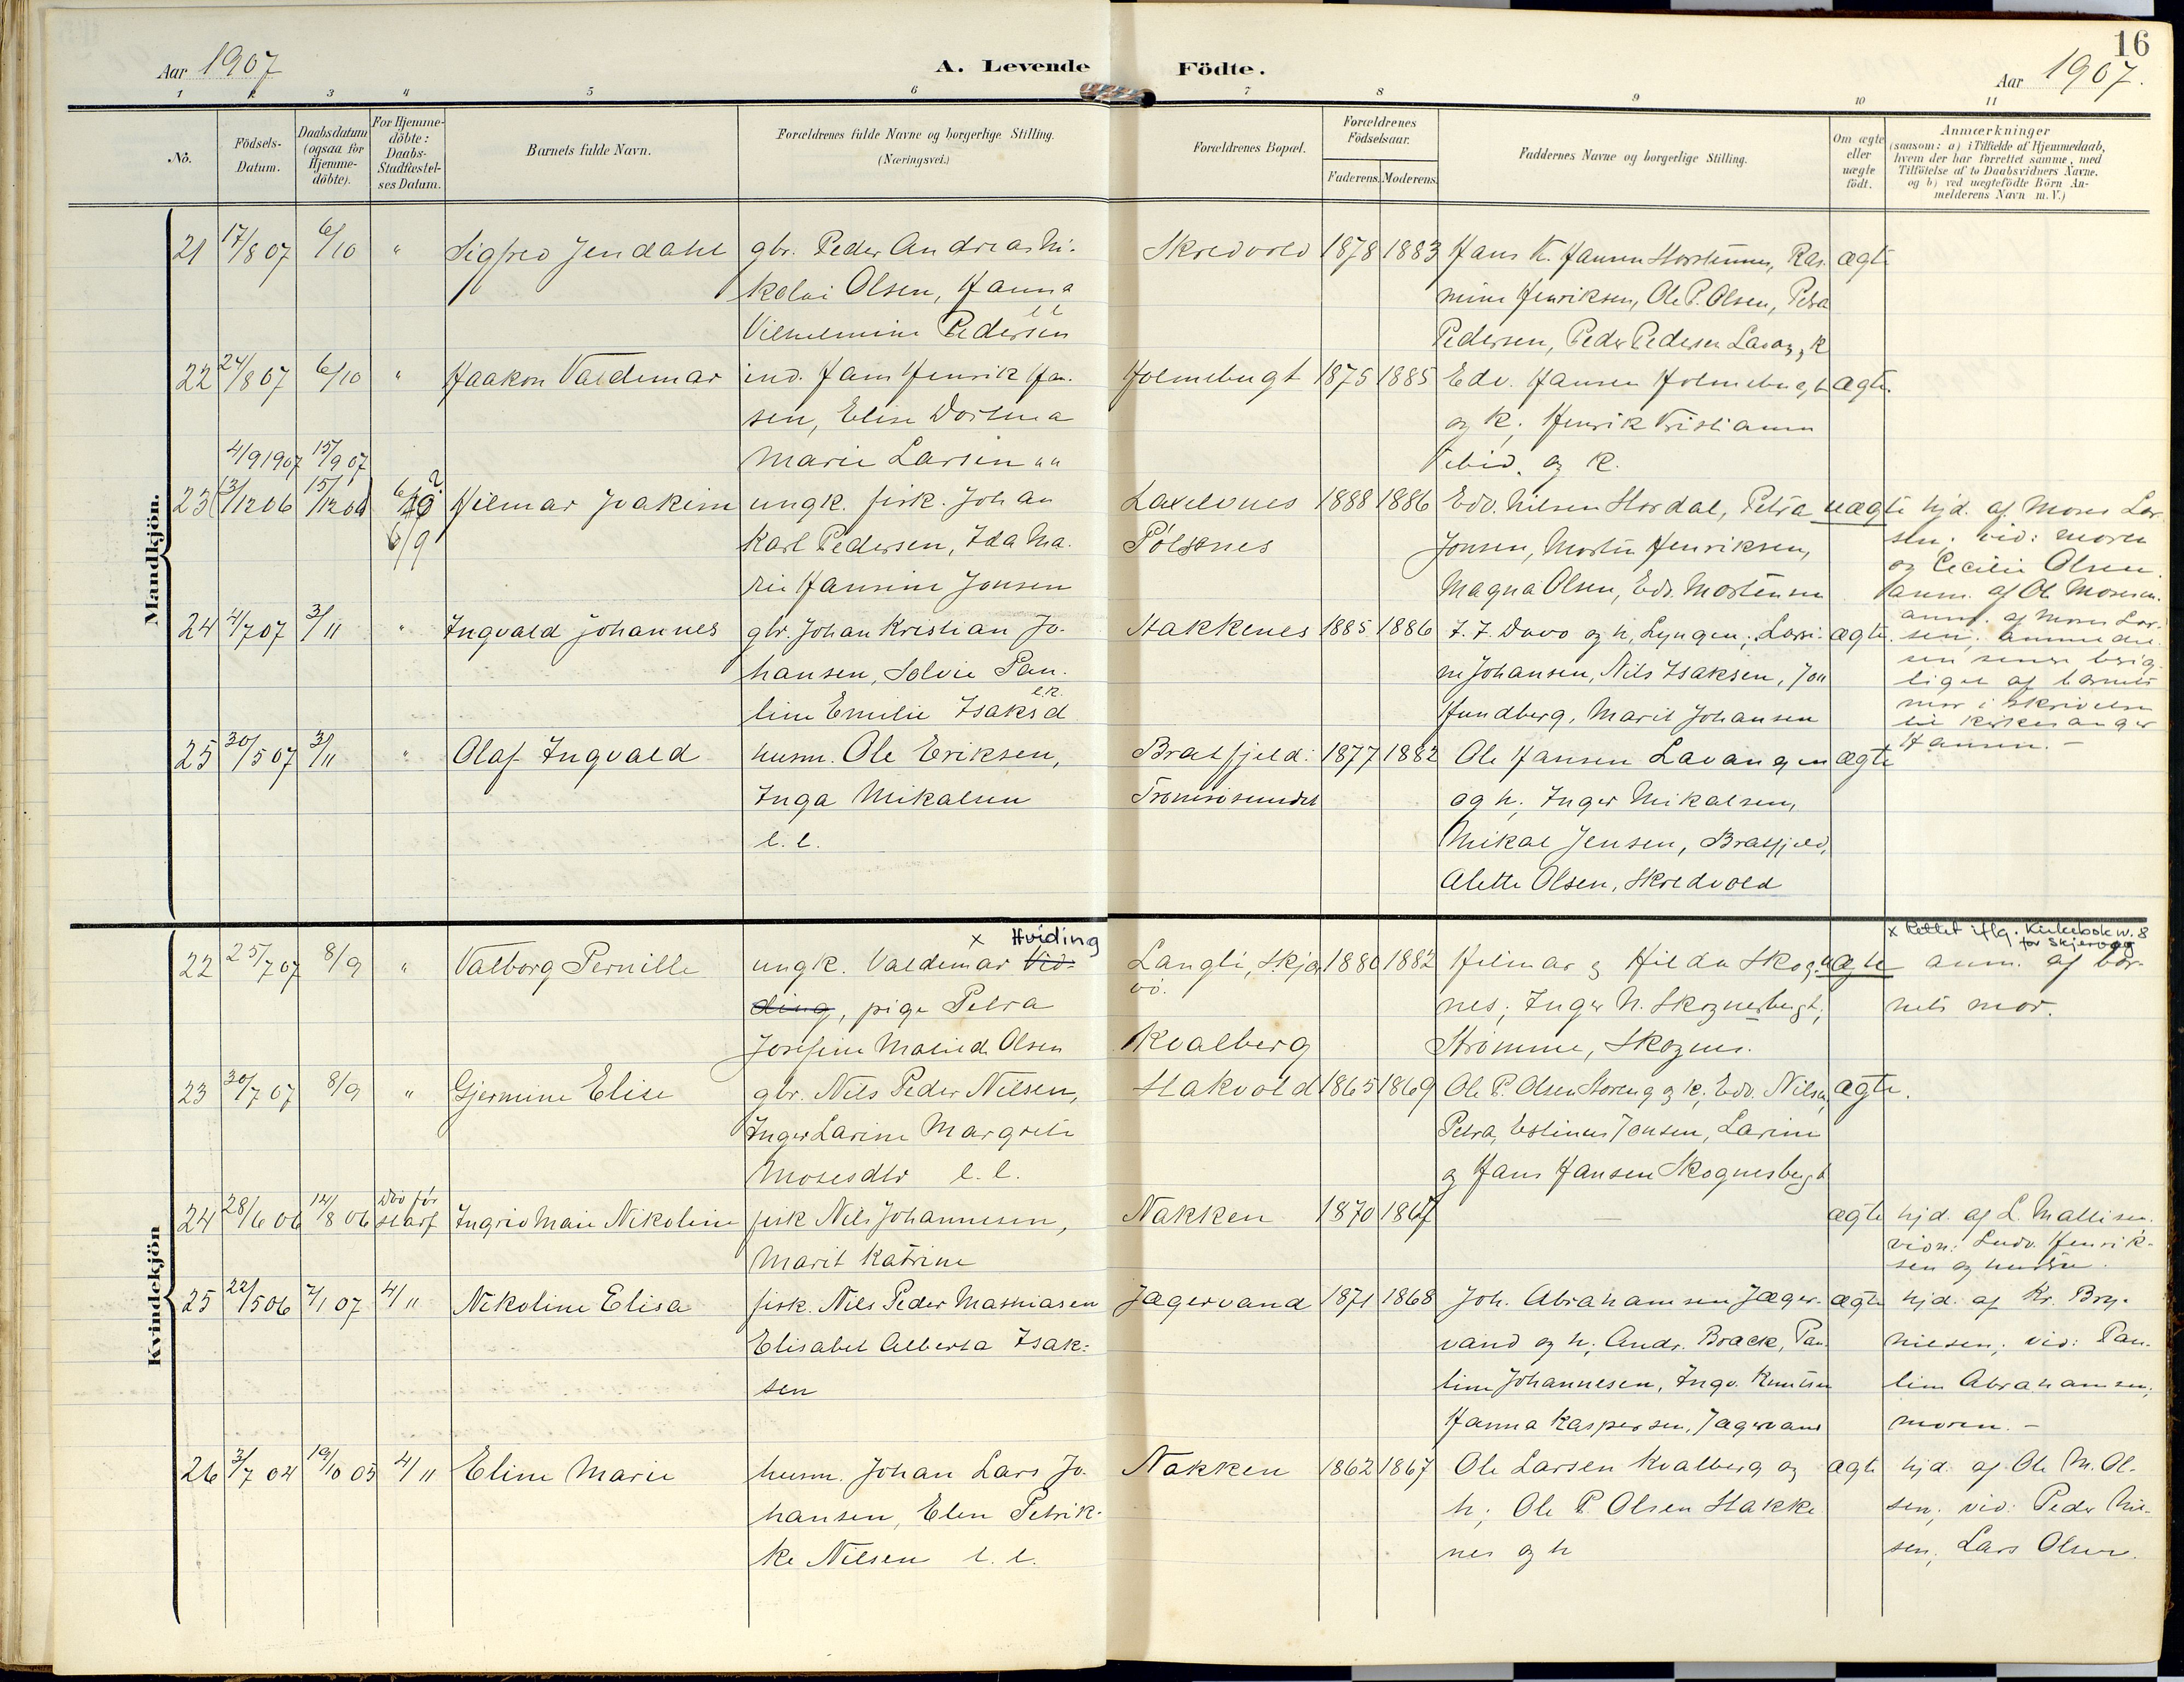 16
Aar 1907
A. Levende Födte.
Aar 1907.
1 2 3 4 5 6 7 8 9 10 11
No. Födsels-Datum. Daabsdatum (ogsaa for Hjemmedöbte). For Hjemmedöbte: Daabs-Stadfæstelses Datum. Barnets fulde Navn. Forældrenes fulde Navne og borgerlige Stilling. (Næringsvei.) Forældrenes Bopæl. Forældrenes Födselsaar. Faderens. Moderens. Faddernes Navne og borgerlige Stilling. Om ægte eller uægte födt. Anmærkninger (saasom: a) i Tilfælde af Hjemmedaab, hvem der har forrettet samme, med Tilföielse af to Daabsvidners Navne, og b) ved uægtefödte Börn Anmelderens Navn m. V.)
Mandkjön.
21 17/8 07 6/10 " Sigfred Jendahl gbr. Peder Andreas Ni- Skredvold 1878 1883 Hans K. Hansen Storstennes, Ras- ægte
kolai Olsen, Hanna mine Henriksen, Ole P. Olsen, Petra
Vilhelmine Pedersen Pedersen, Peder Pedersen
22 24/8 07 6/10 " Haakon Valdemar ind. Hans Henrik Han- Holmebugt 1875 1885 Edv. Hansen Holmebugt ægte.
sen, Elise Dortea og k; Henrik Kristiansen
4/9 1907 15/9 07 Marie Larsen og k.
23 13/12 06 15/12 06 Hilmar Joakim ungk. fisk. Johan Lakselvnes 1888 1886 Edv. Nilsen Stordal, Petra uægte hjd. af Moses Lar-
6/9 Karl Pedersen, Ida Ma- Polsnes Jensen, Martin Henriksen, sen; vid: moren
rie Hansine Jonsen Magna Olsen, Edv. Mortensen og Cecilie Olsen.
anm. af Ol. Mosesen.
24 4/7 07 3/11 " Ingvald Johannes gbr. Johan Kristian Jo- Stakkenes 1885 1886 og h, Lyngen; Lovi- ægte. anm. af Moses Lar-
hansen, Solvie Pau- ne Johansen, Nils Isaksen, Jon sen;
line Emilie Isaksd Hundberg, Marit Johansen
mor i skrivelse
25 30/5 07 3/11 " Olaf Ingvald husm. Ole Eriksen, Bratfjeld: 1877 1882 Ole Hansen Lavangen ægte Hansen. –
Inga Mikalsen Tromsösundet og h; Inger Mikalsen,
l. l. Mikal Jensen, Bratfjeld,
Alette Olsen, Skredvold
Kvindekjön
x Hviding x Rettet iflg. Kirkebok nr. 8 for Skjervøy
22 25/7 07 8/9 " Valborg Pernille ungk. Valdemar Vid- Langli, Skjer- 1880 1882 Hilmar og Hilda Skog- uægte anm. af bar-
ding, pige Petra vö. nes; Inger N. Skognesbugt; nets mor.
Josefine Matild. Olsen Kvalberg Strömme, Skognes.
23 30/7 07 8/9 " Gjermine Elise gbr. Nils Peder Nilsen, Stakvold 1865 1869 Ole P. Olsen Storeng og k; Edv. Nilsen, ægte.
Inger Larine Margrete Petra, Jonsen, Larine
Mosesdtr l. l. og Hans Hansen Skognesbugt
24 28/6 06 14/8 06 död för Ingrid Marie Nikoline fisk Nils Johannesen, Nakken 1870 1867 — ægte hjd. af L. Mathisen.
Marit Katrine vidn: Ludv. Henrik-
sen og hustru.
25 22/5 06 7/1 07 4/11 Nikoline Elisa fisk. Nils Peder Mathiasen Jægervand 1871 1868 Joh. Abrahamsen Jæger- ægte hjd. af Kr. Bry-
Elisabet Alberta Isak- vand og h; Andr. Brack, Pau- nilsen; vid: Pau-
sen line Johannesen, Ingv. Knutsen line Abrahamsen,
Hanna Kaspersen, Jægervand moren. –
26 3/7 04 19/10 05 4/11 Eline Marie husm. Johan Lars Jo- Nakken 1862 1867 Ole Larsen Kvalberg og ægte hjd. af Ole M. Ol-
hansen, Elen Petrik- h; Ole P. Olsen Stakke- sen; vid: Peder Nil-
ke Nilsen l. l. nes og h sen, Lars Olsen.